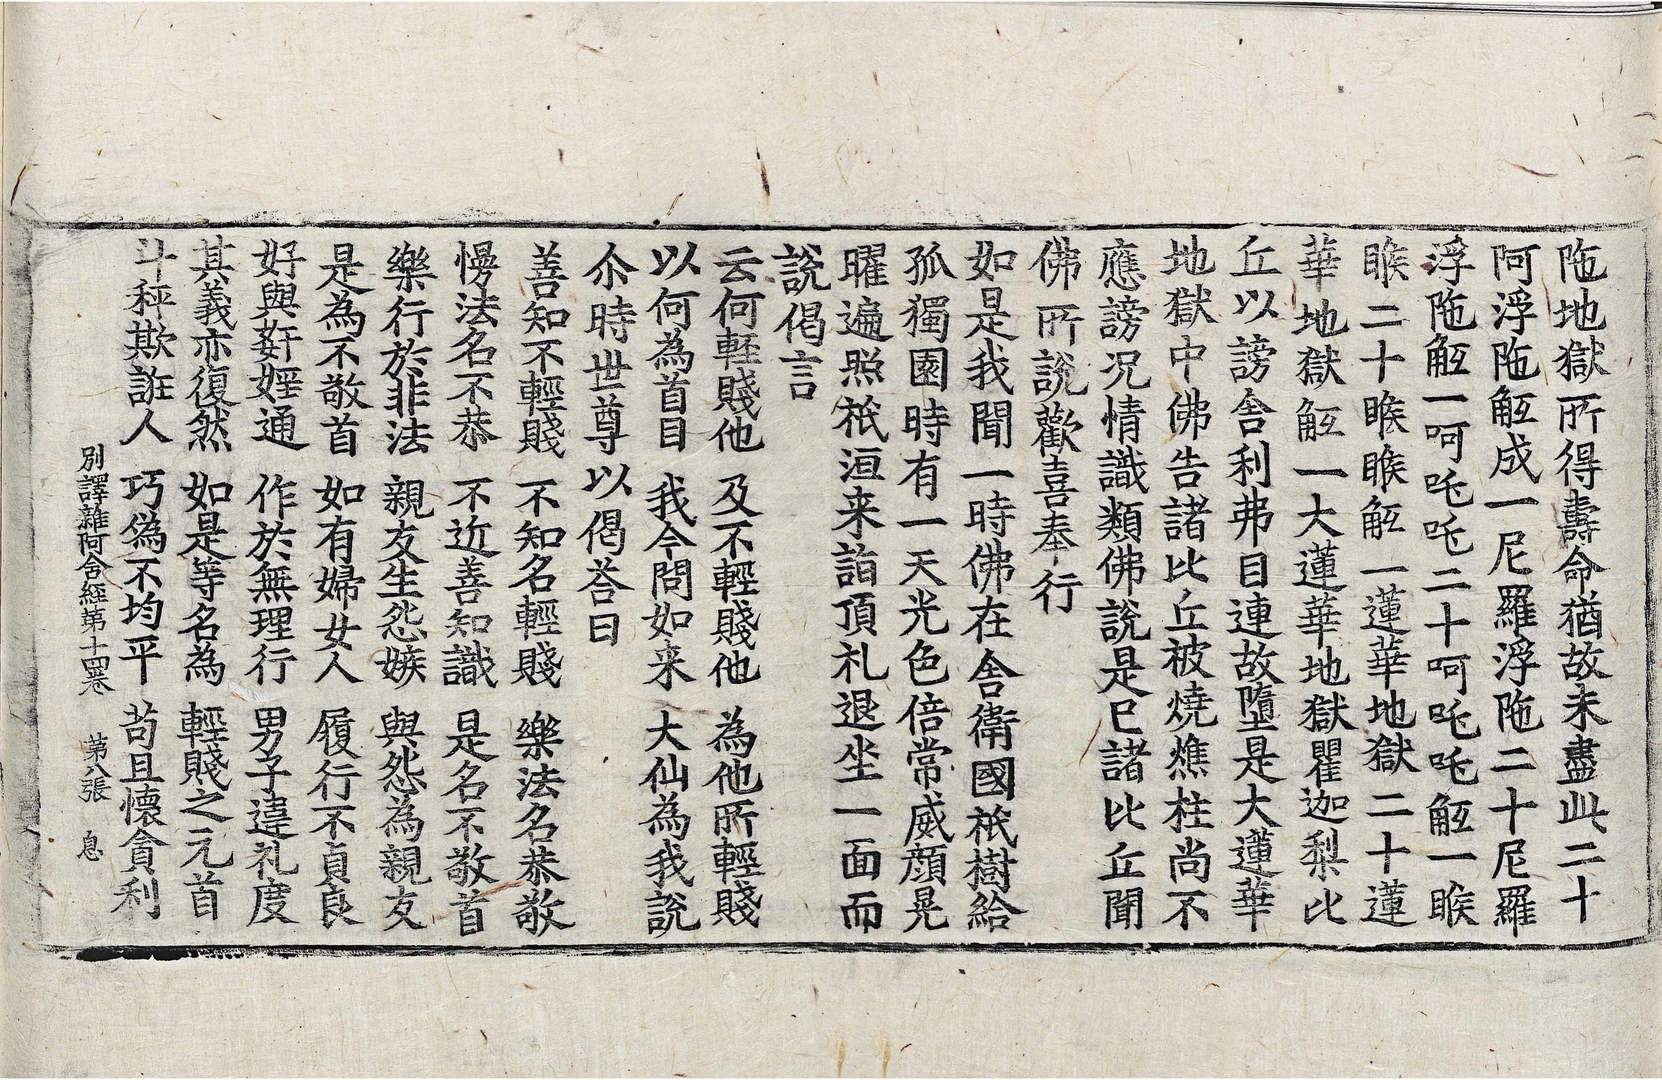 陁地獄所得壽命猶故未盡此二十
阿浮陁陁𧣾成一尼羅浮陁二十尼羅
浮陁𧣾一呵吒吒二十呵吒吒𧣾一睺
睺二十睺睺𧣾一蓮華地獄二十蓮
華地獄𧣾一大蓮華地獄瞿迦梨比
丘以謗舍利弗目連故墮是大蓮華
地獄中佛告諸比丘被燒燋柱尚不
應謗况情識類佛說是已諸比丘聞
佛所說歡喜奉行
如是我聞一時佛在舍衛國祇樹給
孤獨園時有一天光色倍常威顏晃
曜遍照祇洹来詣頂礼退坐一面而
說偈言
云何輕賤他　及不輕賤他　為他所輕賤
以何為首目　我今問如来　大仙為我說
尒時世尊以偈荅曰
善知不輕賤　不知名輕賤　樂法名恭敬
慢法名不恭　不近善知識　是名不敬首
樂行於非法　親友生怨嫉　與怨為親友
是為不敬首　如有婦女人　履行不貞良
好與姧婬通　作於無理行　男子違礼度
其義亦復然　如是等名為　輕賤之元首
斗秤欺誑人　巧偽不均平　苟且懷貪利
別譯雜阿含經第十四卷　第八張　息